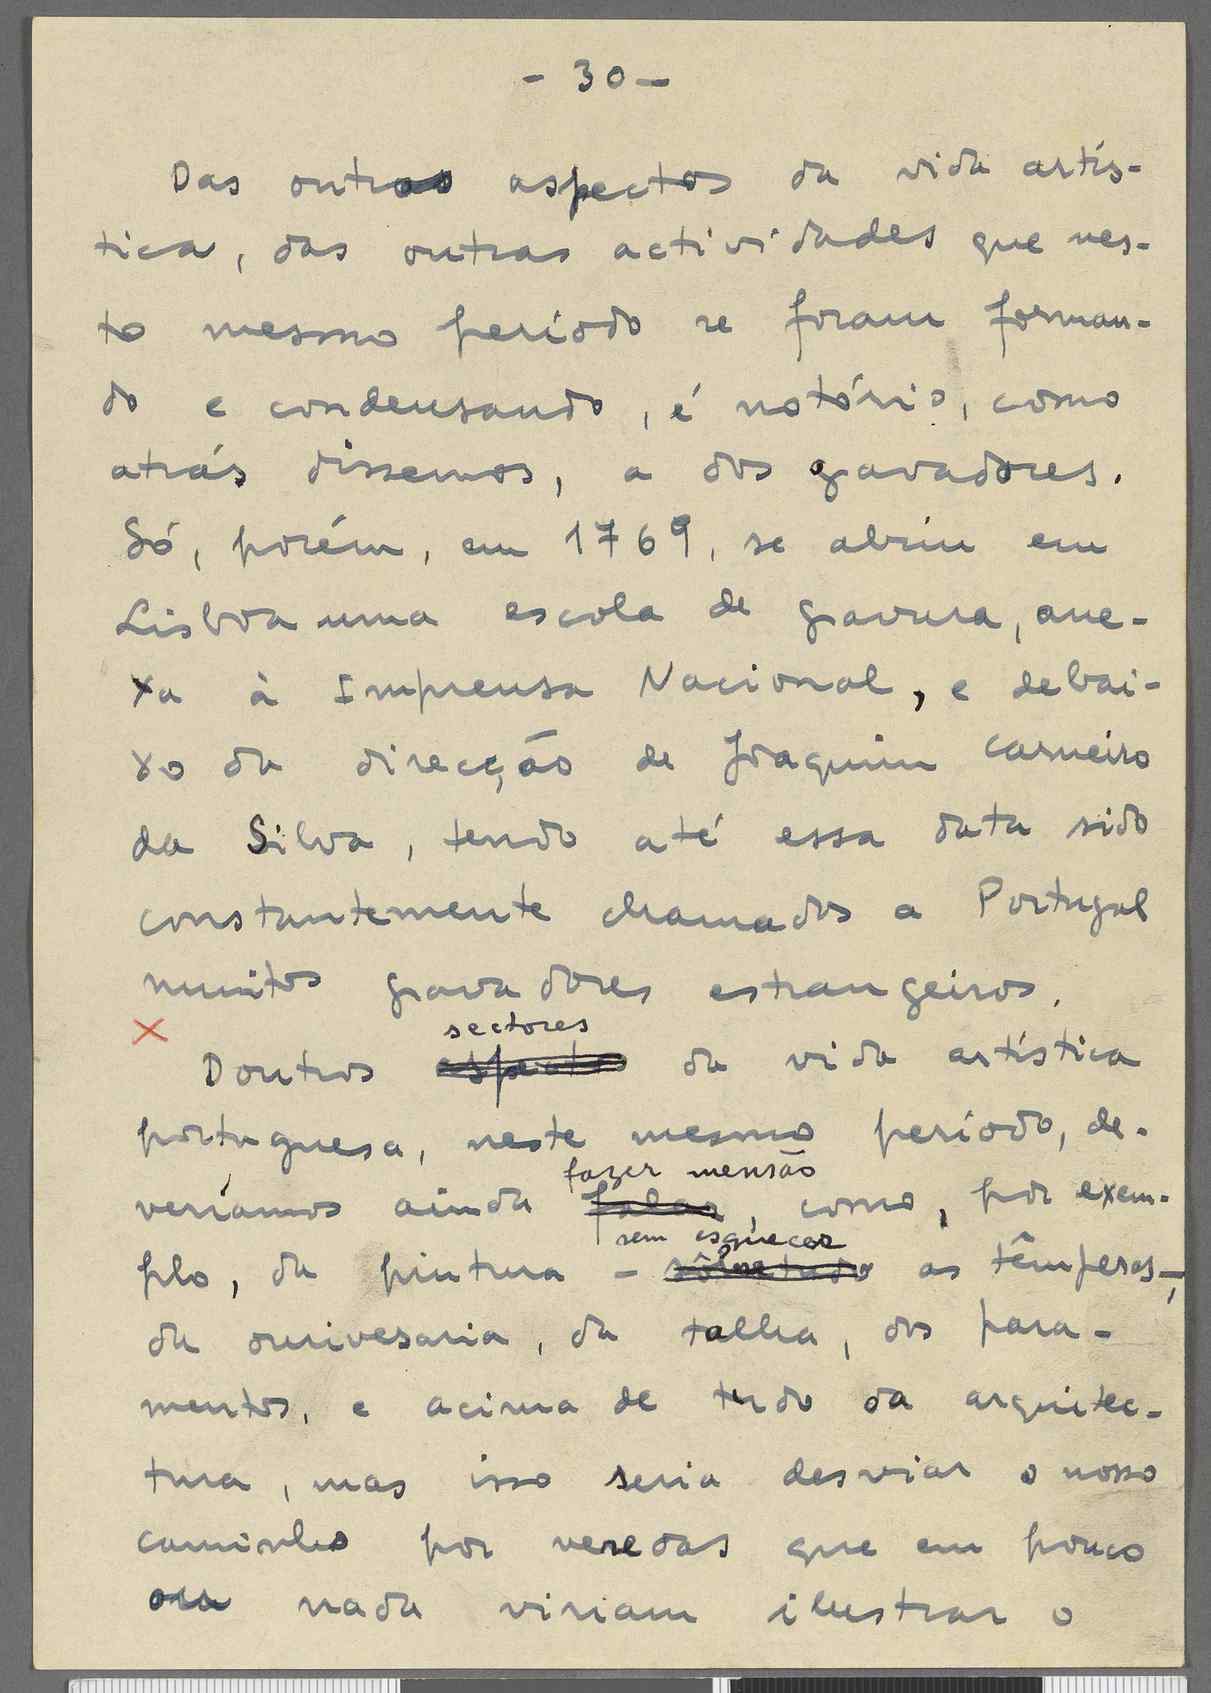 - 30 -
Das outros aspectos da vida artís-
tica, das outras actividades que nes-
to mesmo período se foram forman-
do e condensando, é notório, como
atrás dissemos, a dos gravadores.
Só, porém, em 1769, se abriu em
Lisboa uma escola de gravura, ane-
xa à Imprensa Nacional, e debai-
xo da direcção de Joaquim Carneiro
da Silva, tendo até essa data sido
constantemente chamados a Portugal
muitos gravadores estrangeiros.
sectores
Doutros aspectos da vida artística
portuguesa, neste mesmo período, de-
fazer mensão
veríamos ainda falar, como, por exem-
sem esquecer
plo, da pintura - sôbretudo as têmperas -,
da ourivesaria, da talha, dos para-
mentos, e acima de tudo da arquitec-
tura, mas isso seria desviar o nosso
caminho por veredas que em pouco
ou nada viriam ilustrar o